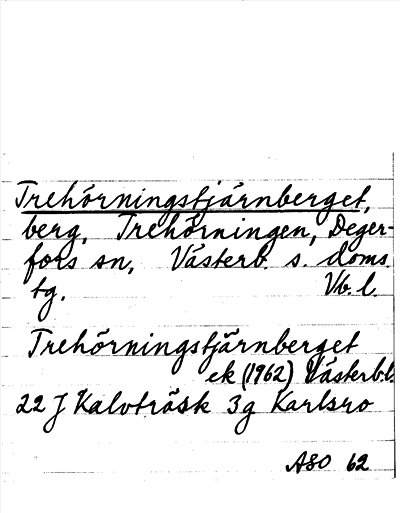 Trehörningstjärnberget,
berg, Trehörningen, Deger-
fors sn, Västerb. s. doms.
tg. Vb. l.
Trehörningstjärnberget
ek (1962) Västerb.l.
22 J Kalvträsk 3g Karlsro
ASO 62